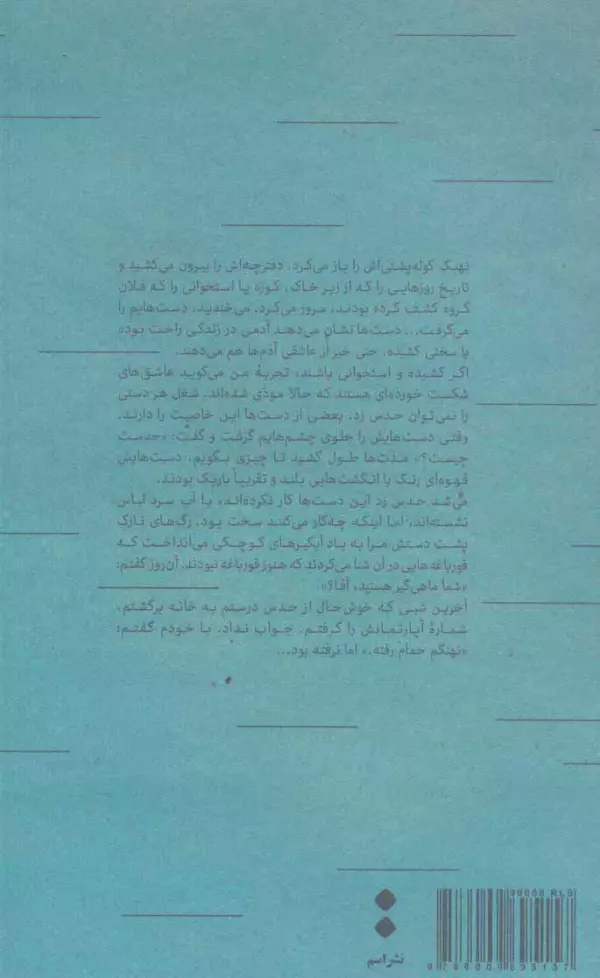 نهنگ کوله‌پشتی‌اش را باز می‌کرد. دفترچه‌اش را بیرون می‌کشید و
تاریخ روزهایی را که از زیر خاک، کوزه یا استخوانی را که فلان
گروه کشف کرده بودند، مرور می‌کرد. می‌خندید، دست‌هایم را
می‌گرفت... دست‌ها نشان می‌دهند آدمی در زندگی راحت بوده
یا سختی کشیده، حتی خبر از عاشقی آدم‌ها هم می‌دهند.
اگر کشیده و استخوانی باشند، تجربهٔ من می‌گوید عاشق‌های
شکست خورده‌ای هستند که حالا موذی شده‌اند. شغل هر دستی
را نمی‌توان حدس زد. بعضی از دست‌ها این خاصیت را دارند.
وقتی دست‌هایش را جلوی چشم‌هایم گرفت و گفت: «حدست
چیست؟» مدت‌ها طول کشید تا چیزی بگویم. دست‌هایش
قهوه‌ای رنگ با انگشت‌هایی بلند و تقریباً باریک بودند.
می‌شد حدس زد این دست‌ها کار نکرده‌اند، با آب سرد لباس
نشسته‌اند، اما اینکه چه‌کار می‌کنند سخت بود. رگ‌های نازک
پشت دستش مرا به یاد آبگیرهای کوچکی می‌انداخت که
قورباغه‌هایی در آن شنا می‌کردند که هنوز قورباغه نبودند. آن روز گفتم:
«شما ماهی‌گیر هستید، آقا؟»
آخرین شبی که خوش‌حال از حدس درستم به خانه برگشتم،
شمارهٔ آپارتمانش را گرفتم. جواب نداد. با خودم گفتم:
«نهنگم حمام رفته.» اما نرفته بود...
نشر اسم